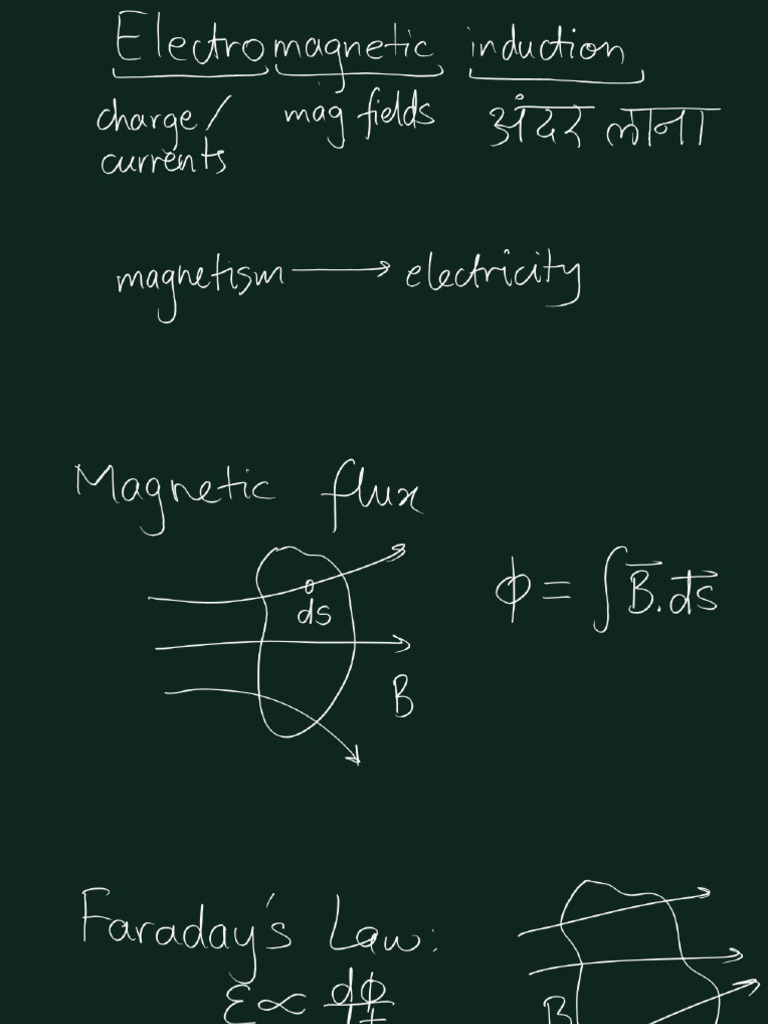 Electromagnetic induction
charge/ mag fields अंदर लाना
currents
magnetism → electricity
Magnetic flux
ds
ϕ = ∫B⃗.d⃗s
B
Faraday's Law:
ε ∝ dϕ/dt
B